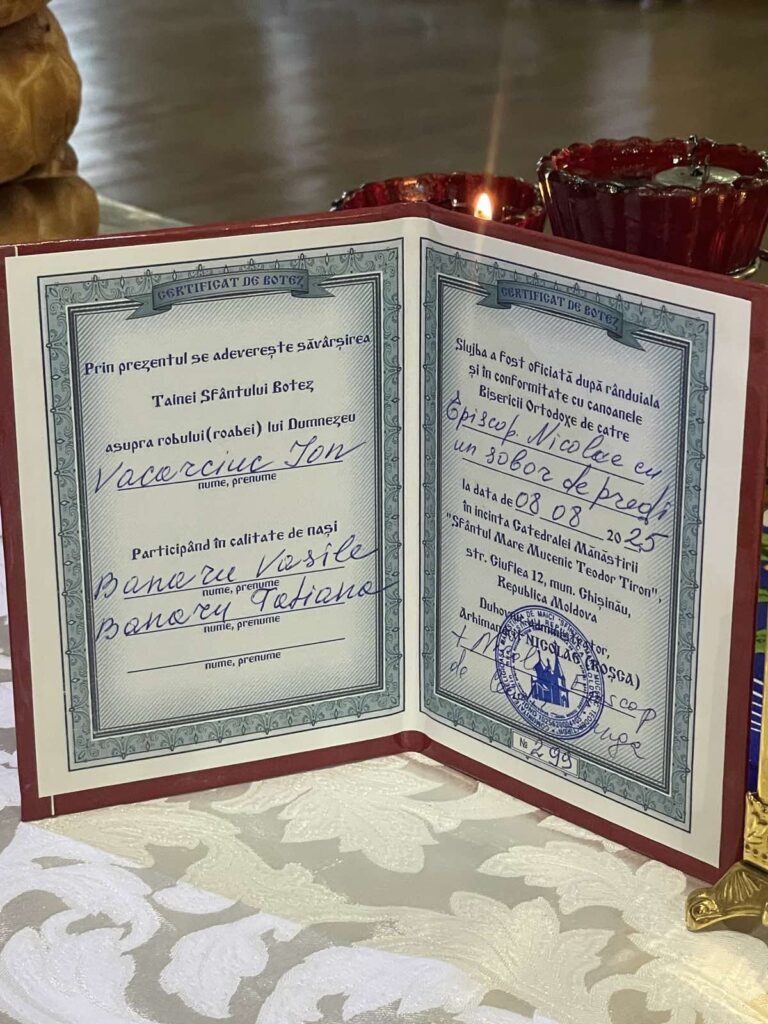 CERTIFICAT DE BOTEZ
Prin prezentul se adeverește săvârșirea
Tainei Sfântului Botez
asupra robului(roabei) lui Dumnezeu
Vacarciuc Ion
nume, prenume
Participând în calitate de nași
Banaru Vasile
nume, prenume
Banaru Tatiana
nume, prenume
nume, prenume
CERTIFICAT DE BOTEZ
Slujba a fost oficiată după rânduiala
și în conformitate cu canoanele
Bisericii Ortodoxe de catre
Episcop Nicolae cu
un sobor de preoți
la data de 08 08 2025
în incinta Catedralei Mănăstirii
"Sfântul Mare Mucenic Teodor Tiron",
str. Ciuflea 12, mun. Chișinău,
Republica Moldova
Arhimandrit NICOLAE (ROȘCA)
Episcop
de
№ 299